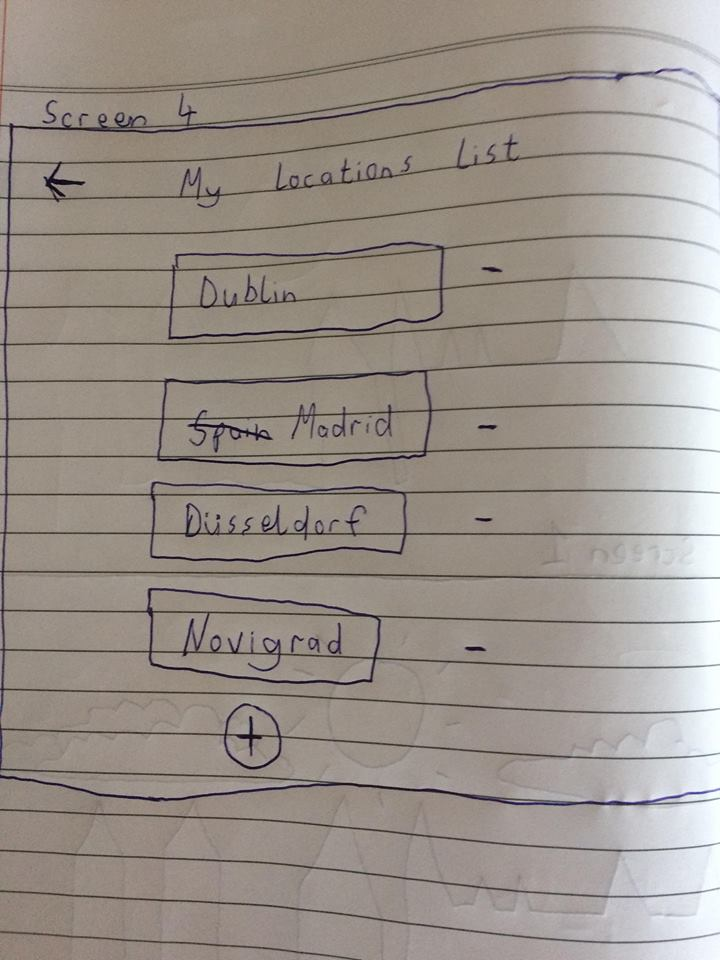 Screen 4
← My Locations List
Dublin -
Spain Madrid -
Düsseldorf -
Novigrad -
+
Screen 1